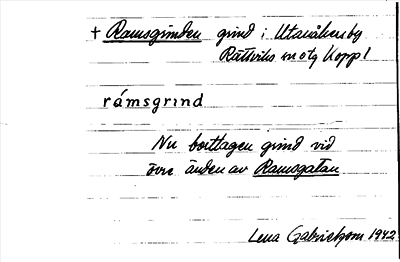 † Ramsgrinden grind i Utanåkerby
Rättviks sn o tg Kopp l
rámsgrind
Nu borttagen grind vid
övre änden av Ramsgatan
Lena Gabrielson 1942